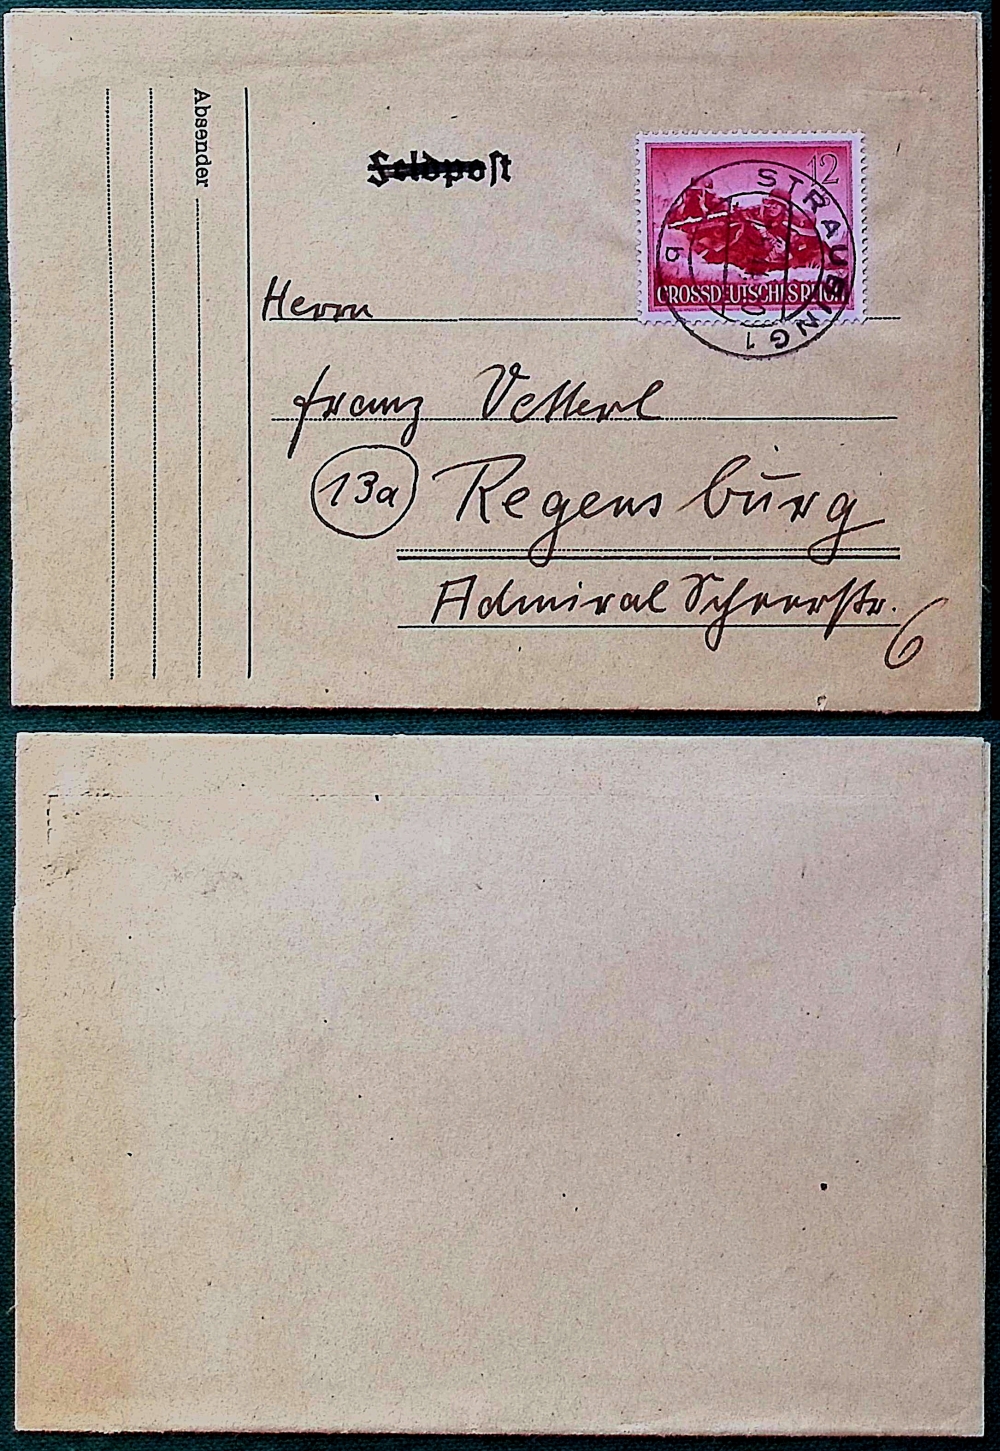 Absender
Feldpost
12
STRAUBING 1
GROSSDEUTSCHES REICH
Herrn
Franz Vetterl
13a Regensburg
Admiral Scheerstr.
6